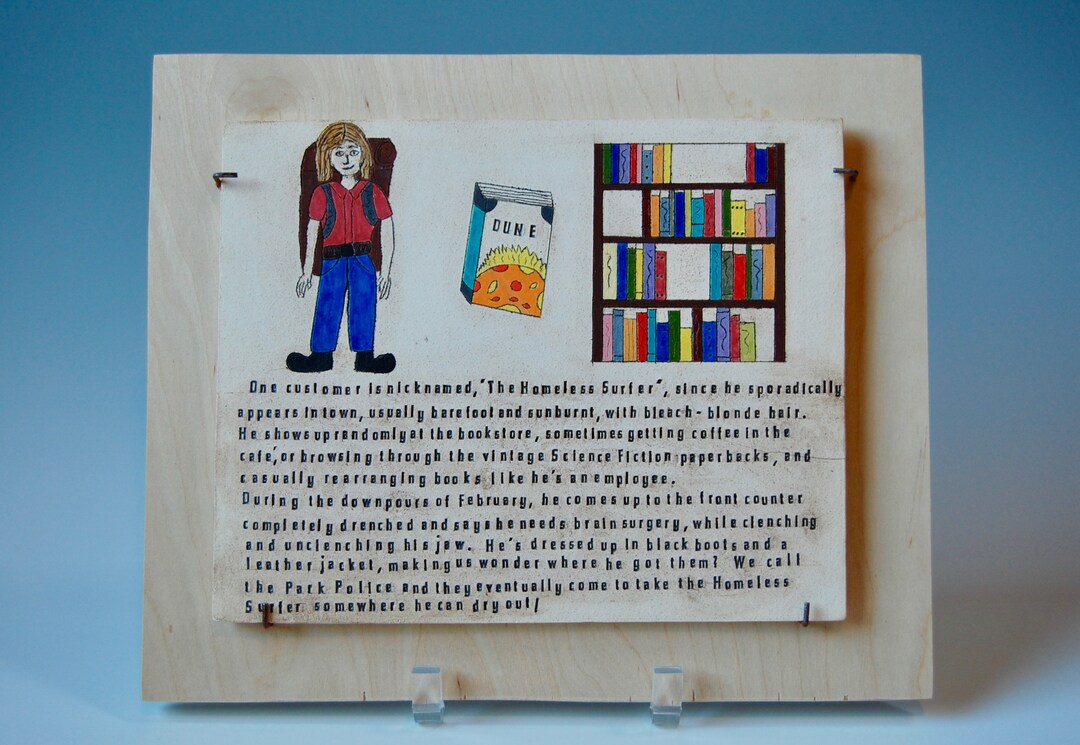 DUNE
One customer is nicknamed, "The Homeless Surfer", since he sporadically
appears in town, usually barefoot and sunburnt, with bleach-blonde hair.
He shows up randomly at the bookstore, sometimes getting coffee in the
café, or browsing through the vintage Science Fiction paperbacks, and
casually rearranging books like he's an employee.
During the downpours of February, he comes up to the front counter
completely drenched and says he needs brain surgery, while clenching
and unclenching his jaw. He's dressed up in black boots and a
leather jacket, making us wonder where he got them? We call
the Park Police and they eventually come to take the Homeless
Surfer somewhere he can dry out/